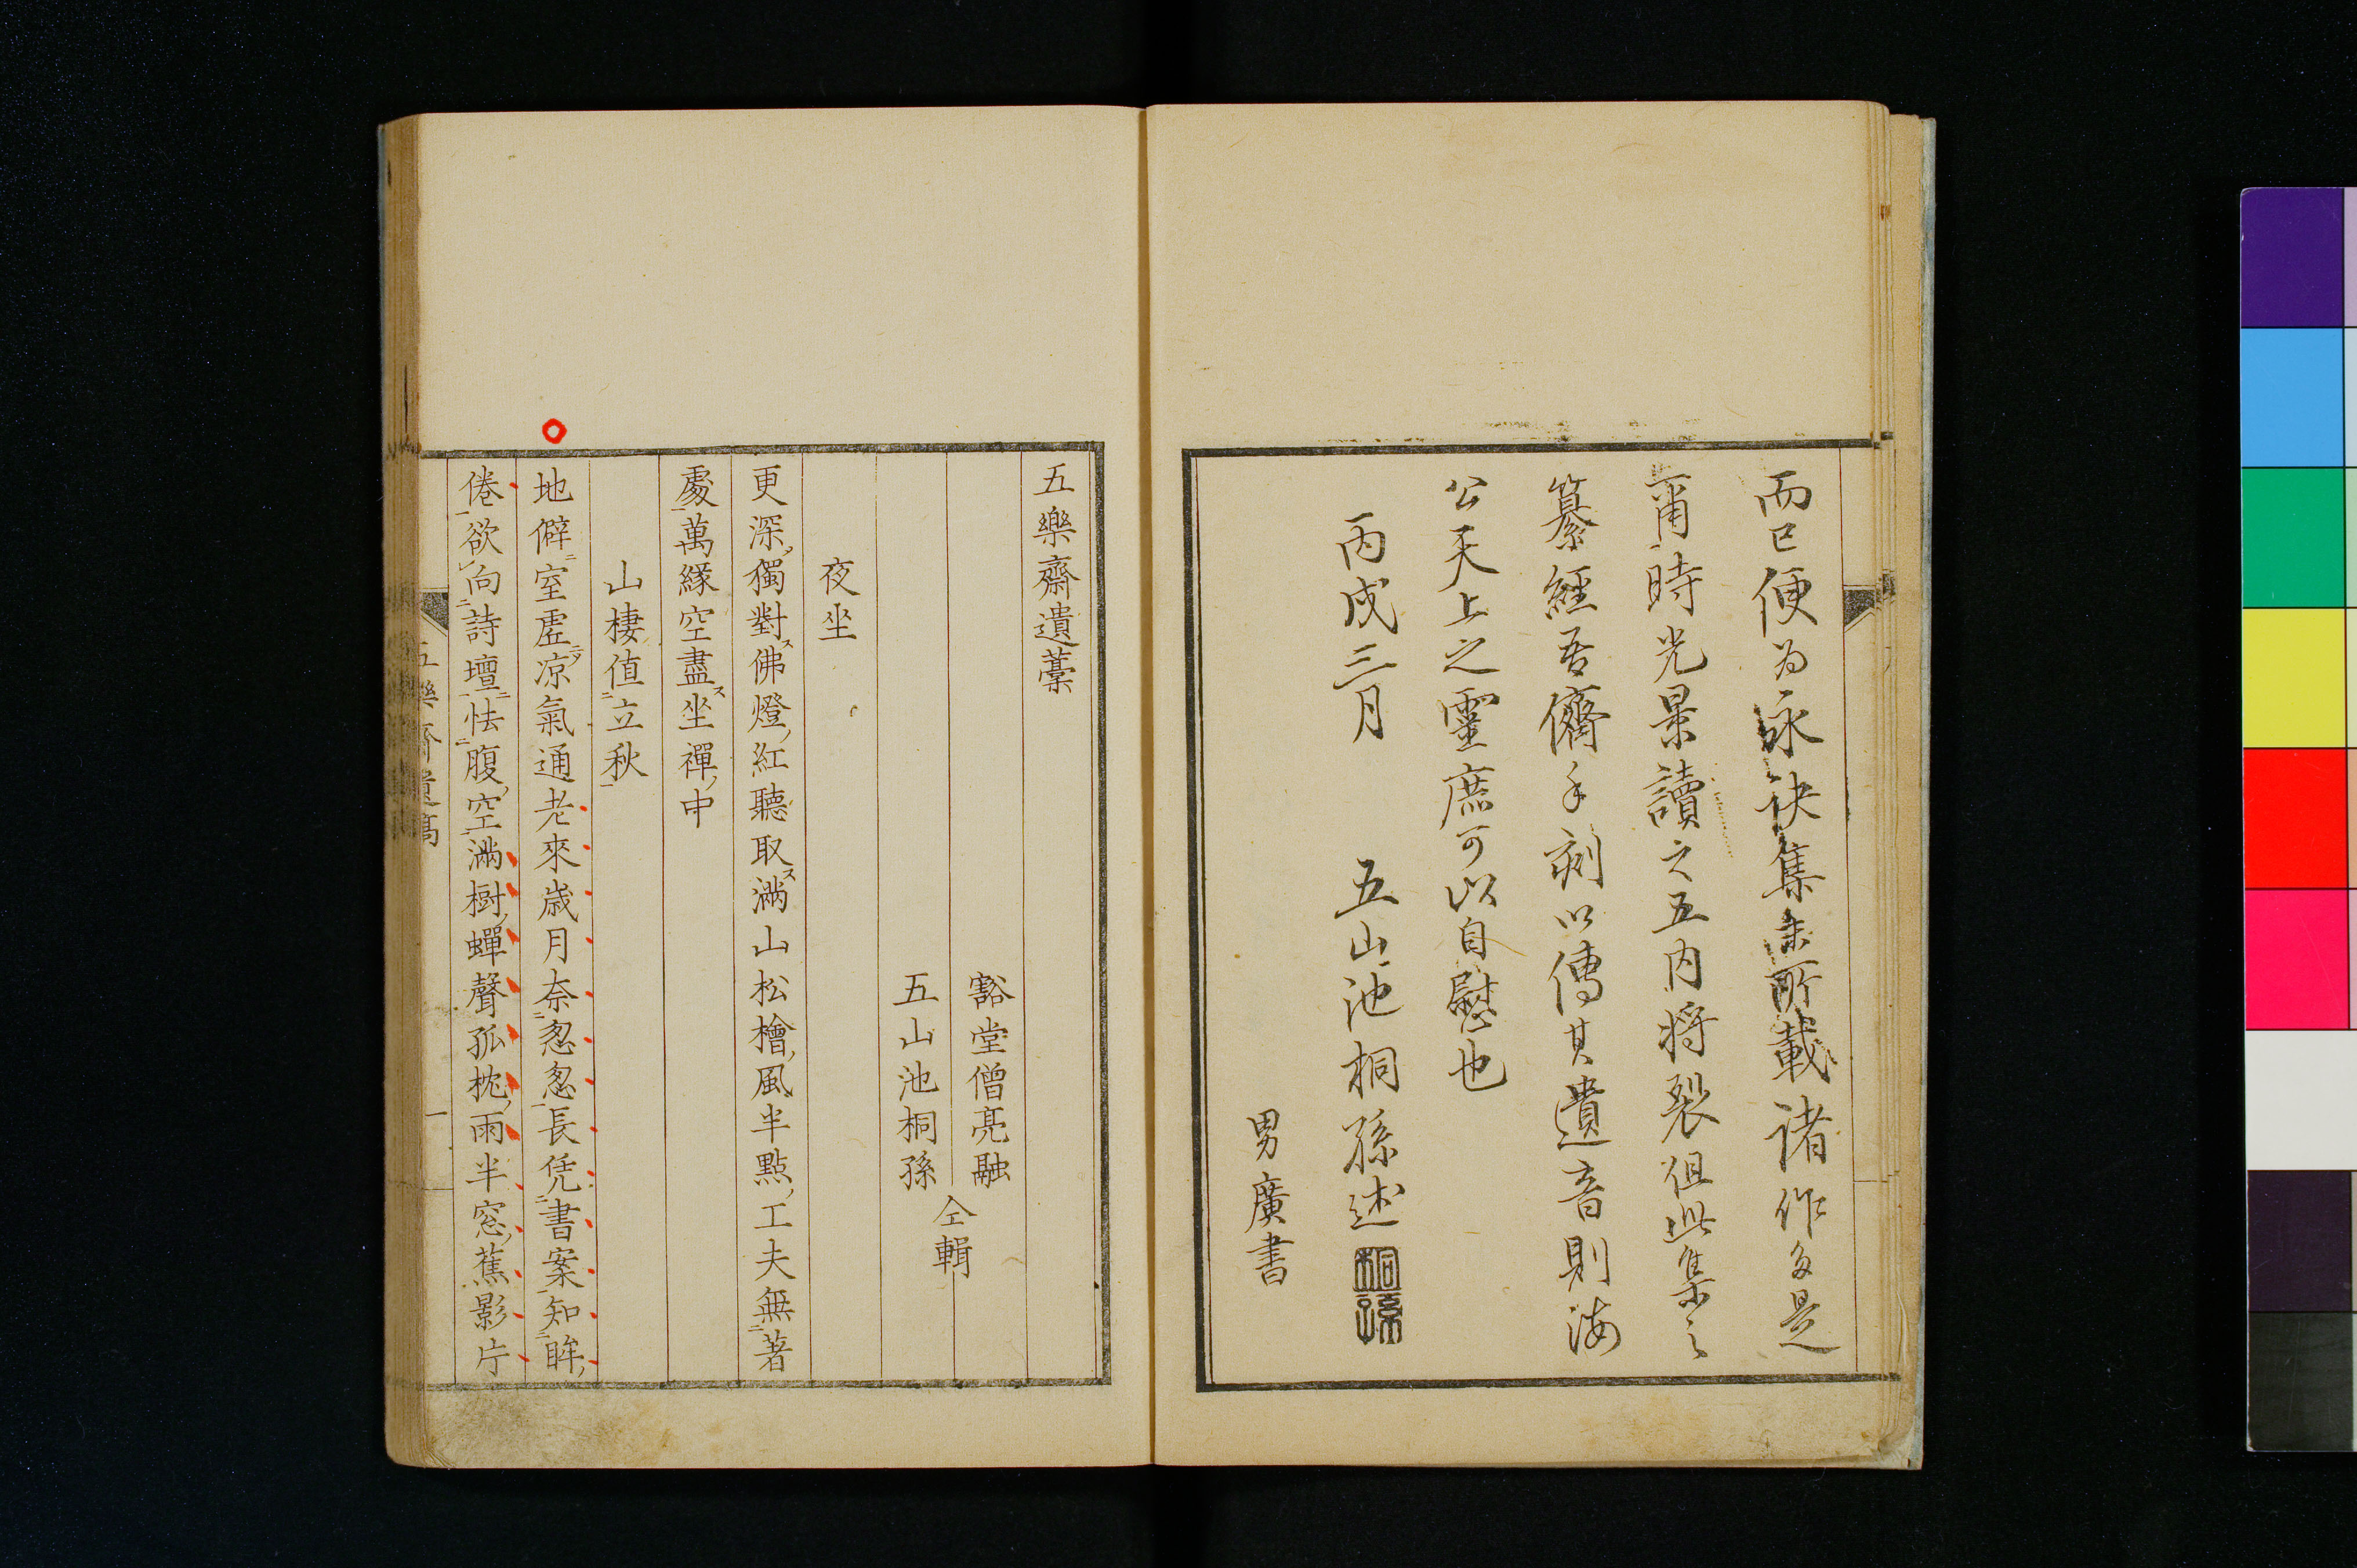 而已便為永訣集余所載諸作多是
甫時光景讀之五内将裂但此集之
纂經吾儕手刻以傳其遺音則海
公天上之靈庶可以自慰也
丙戌三月　五山池桐孫述
桐孫
男廣書
五樂齋遺藁
豁堂僧亮融
五山池桐孫
仝輯
夜坐
更深獨對佛燈紅聽取滿山松檜風半點工夫無著
處萬緣空盡坐禪中
山棲值立秋
地僻室虛凉氣通老來歳月奈怱怱長凭書案知眸
倦欲向詩壇怯腹空滿樹蟬聲孤枕雨半窓蕉影片
五樂齋遺藁
一